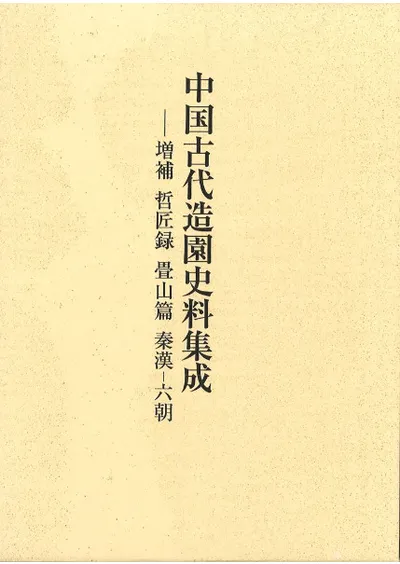 中国古代造園史料集成
—増補 哲匠録 畳山篇 秦漢–六朝